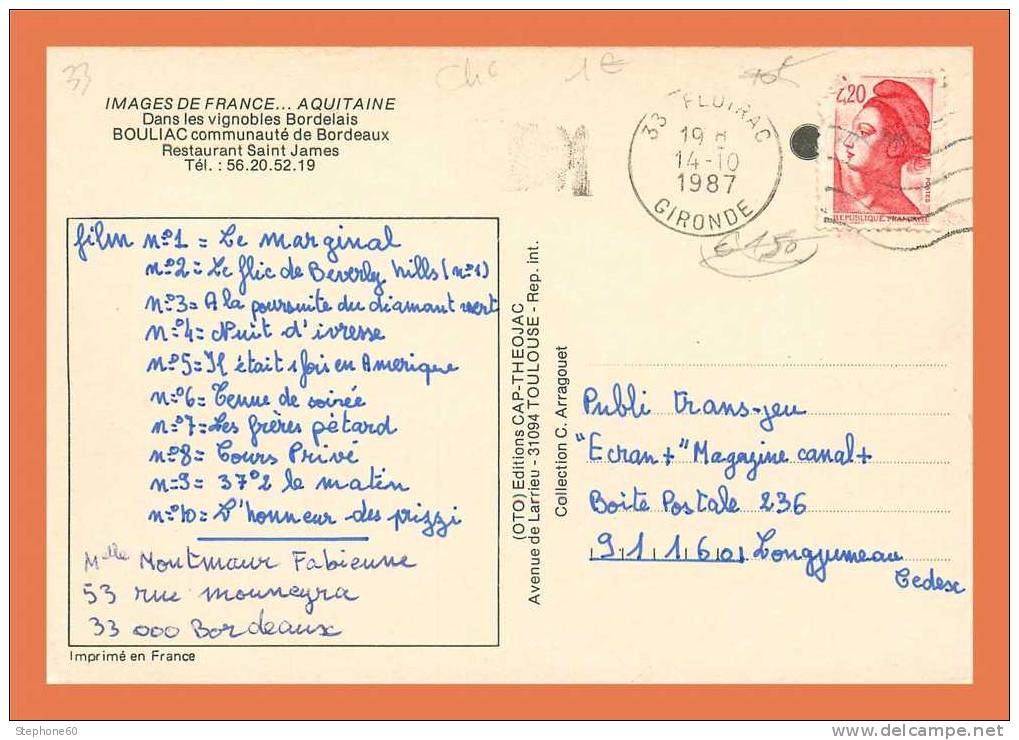 33
Ch c
1€
IMAGES DE FRANCE... AQUITAINE
Dans les vignobles Bordelais
BOULIAC communauté de Bordeaux
Restaurant Saint James
Tél. : 56.20.52.19
33 FLOIRAC
19 H
14-10
1987
GIRONDE
2,20
POSTES
REPUBLIQUE FRANÇAISE
€ 1,50
film n°1 = Le marginal
n°2 = Le flic de Beverly hills (n°1)
n°3 = A la poursuite du diamant vert
n°4 = Nuit d'ivresse
n°5 = Il était 1 fois en Amerique
n°6 = Tenue de soirée
n°7 = Les frères pétard
n°8 = Cours Privé
n°9 = 37°2 le matin
n°10 = L'honneur des prizzi
Mlle Montmaur Fabienne
53 rue mouneyra
33 000 Bordeaux
Imprimé en France
(OTO) Editions CAP-THEOJAC
Avenue de Larrieu - 31094 TOULOUSE - Rep. int.
Collection C. Arragouet
Publi Trans-jeu
"Ecran +" Magazine canal +
Boite Postale 236
91160 Longjumeau
Cedex
Stephone60
www.delcampe.net